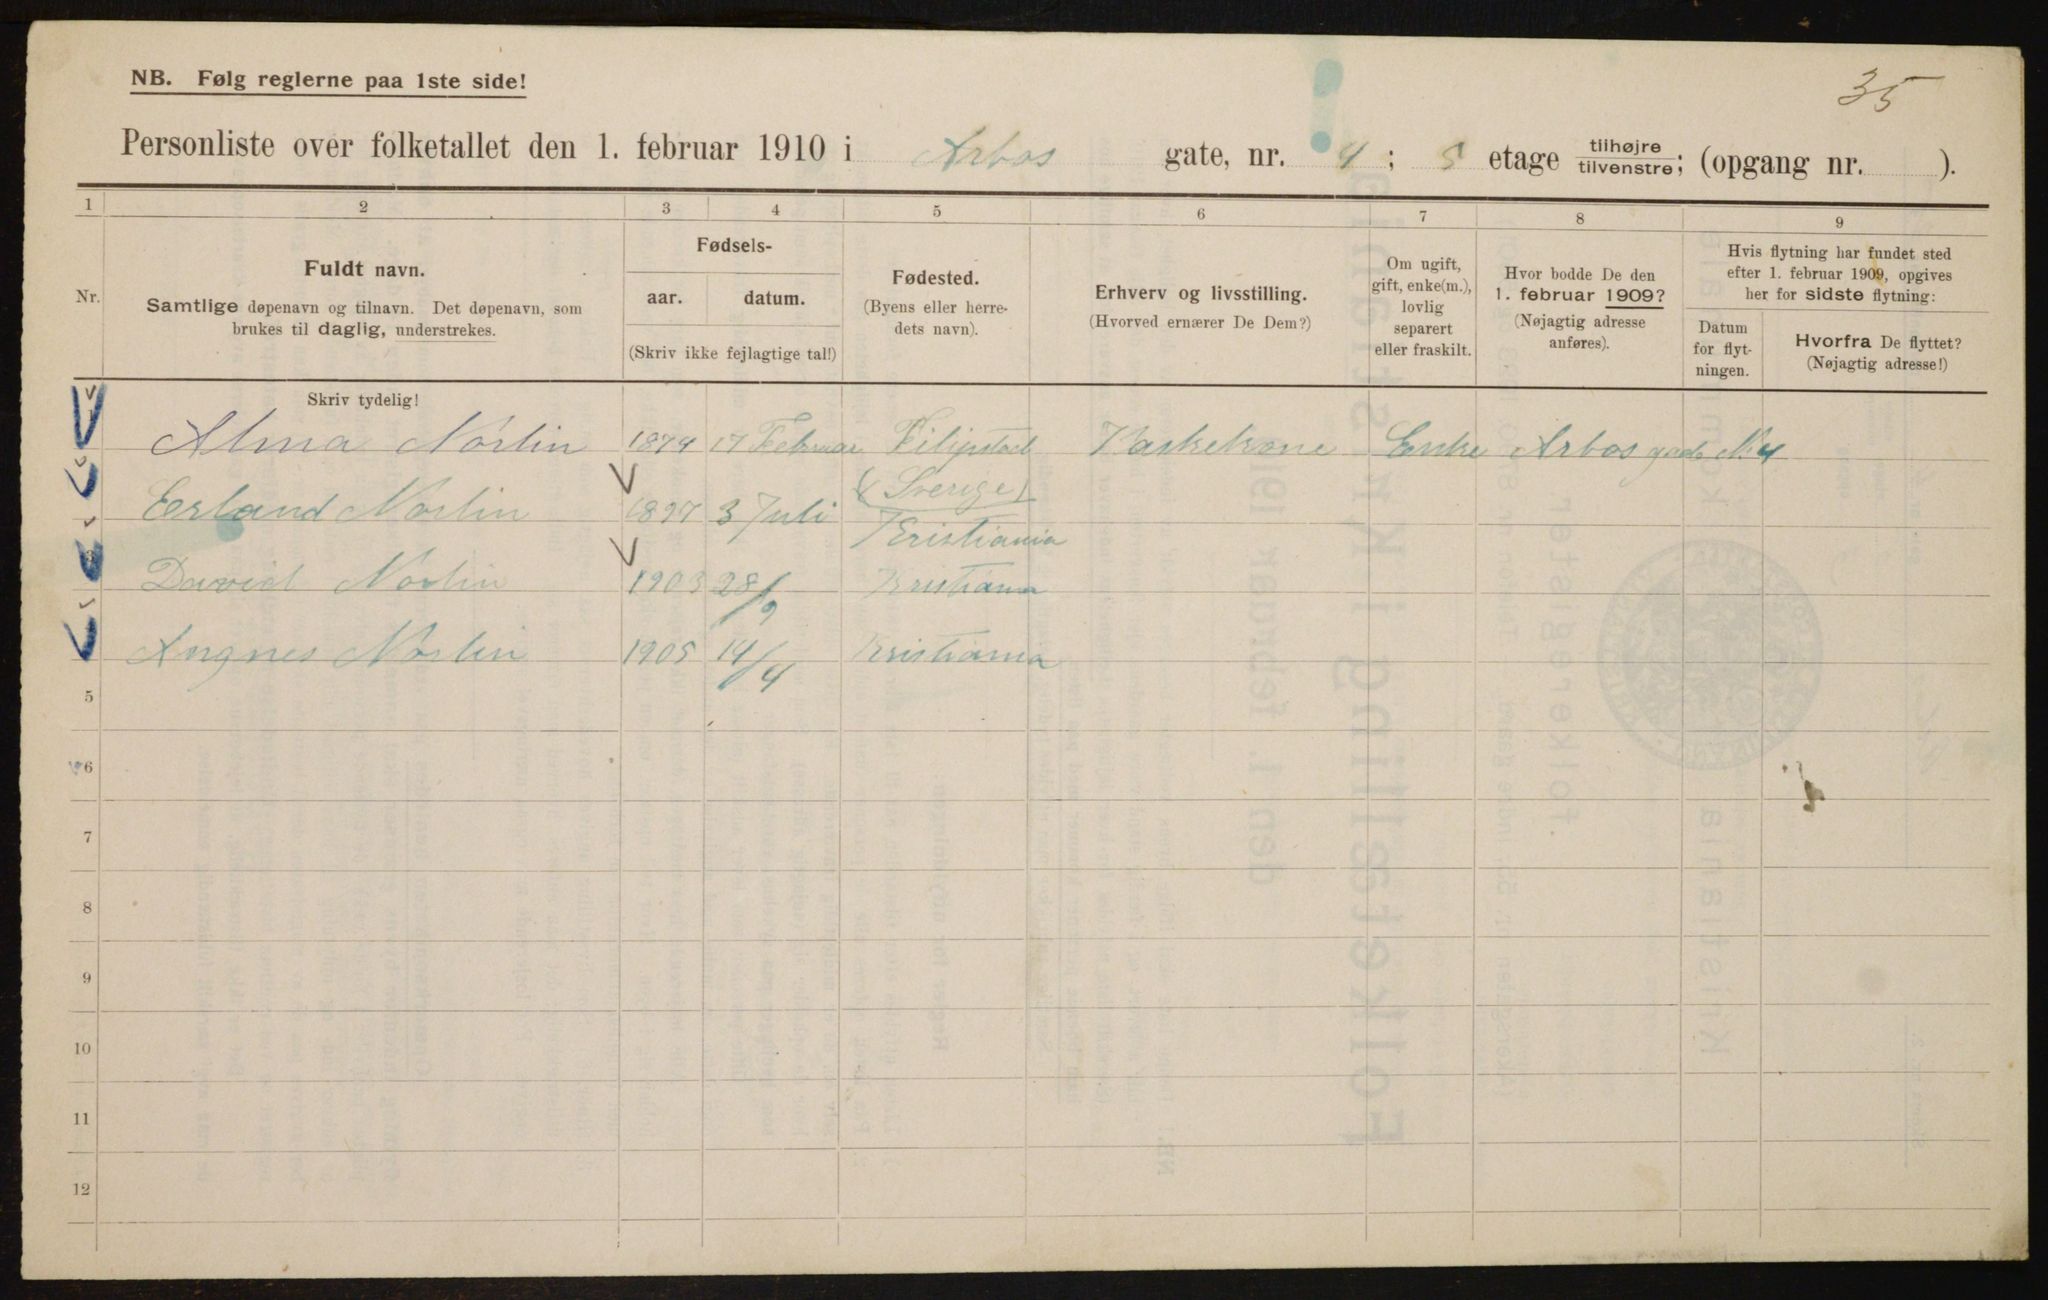 35
NB. Følg reglerne paa 1ste side!
Personliste over folketallet den 1. februar 1910 i Arbos gate, nr. 4; 5 etage tilhøjre/tilvenstre; (opgang nr. ).
1 2 3 4 5 6 7 8 9
Nr.
Fuldt navn.
Samtlige døpenavn og tilnavn. Det døpenavn, som
brukes til daglig, understrekes.
Fødsels-
aar. datum.
(Skriv ikke fejlagtige tal!)
Fødested.
(Byens eller herre-
dets navn).
Erhverv og livsstilling.
(Hvorved ernærer De Dem?)
Om ugift,
gift, enke(m.),
lovlig
separert
eller fraskilt.
Hvor bodde De den
1. februar 1909?
(Nøjagtig adresse
anføres).
Hvis flytning har fundet sted
efter 1. februar 1909, opgives
her for sidste flytning:
Datum
for flyt-
ningen.
Hvorfra De flyttet?
(Nøjagtig adresse!)
Skriv tydelig!
Alma Nórlin 1874 17 Februar Filipstad Vaskekone Enke Arbos gade No 4
(Sverige)
Erland Norlin 1897 3 Juli Kristiania
David Norlin 1903 28/9 Kristiania
Angnes Norlin 1905 14/4 Kristiania
5
6
7
8
9
10
11
12